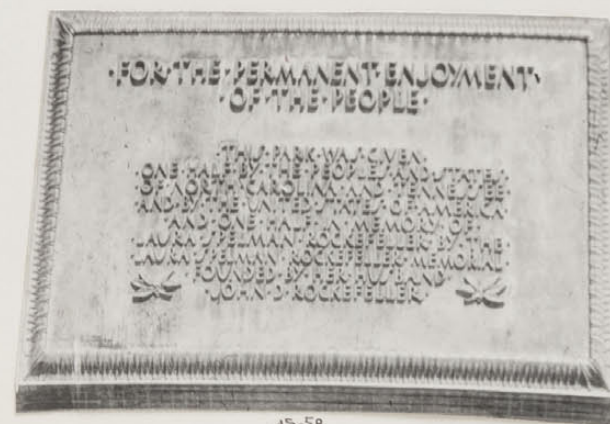 ·FOR·THE·PERMANENT·ENJOYMENT·
·OF·THE·PEOPLE·
·THIS·PARK·WAS·GIVEN·
ONE·HALF·BY·THE·PEOPLES·AND·STATES
OF·NORTH·CAROLINA·AND·TENNESSEE
AND·BY·THE·UNITED·STATES·OF·AMERICA
·AND·ONE·HALF·IN·MEMORY·OF·
LAURA·SPELMAN·ROCKEFELLER·BY·THE·
LAURA·SPELMAN·ROCKEFELLER·MEMORIAL
·FOUNDED·BY·HER·HUSBAND·
·JOHN·D·ROCKEFELLER·